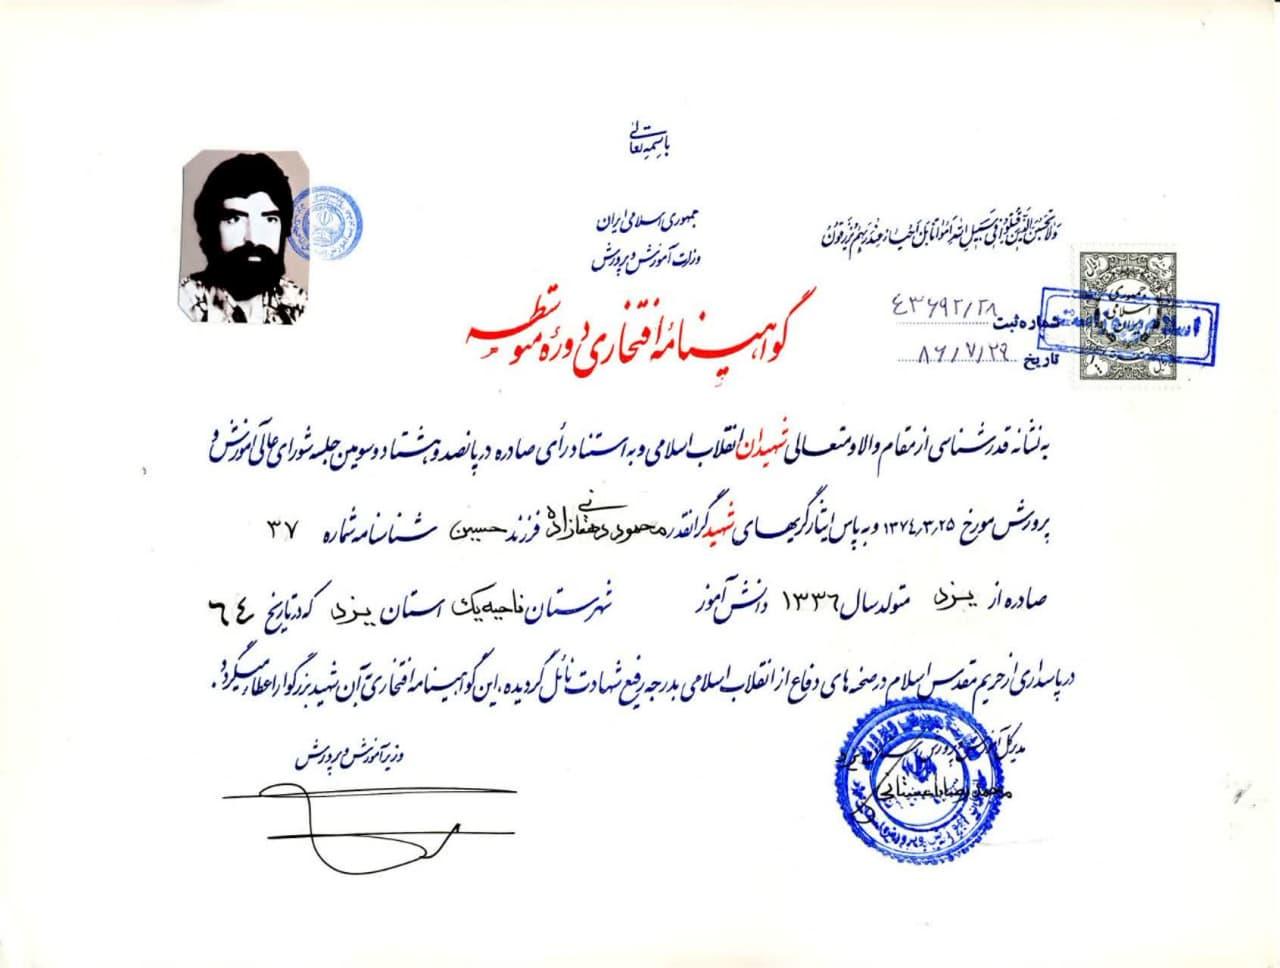 باسمه تعالی
جمهوری اسلامی ایران
وزارت آموزش و پرورش
ولا تحسبن الذین قتلوا فی سبیل الله امواتا بل احیاء عند ربهم یرزقون
شماره ثبت ۴۳۶۹۲/۲۸
تاریخ ۸۶/۷/۲۹
جمهوری
اسلامی
ایران
گواهینامهٔ افتخاری دورهٔ متوسطه
به نشانه قدرشناسی از مقام والا و متعالی شهیدان انقلاب اسلامی و به استناد رأی صادره در پانصد و هشتاد و سومین جلسه شورای عالی آموزش و
پرورش مورخ ۱۳۷۴٫۳٫۲۵ و به پاس ایثارگریهای شهید گرانقدر محمود دهقانی زاده فرزند حسین شناسنامه شماره ۳۷
صادره از یزد متولد سال ۱۳۳۶ دانش آموز شهرستان ناحیه یک استان یزد که در تاریخ ۶۴
در پاسداری از حریم مقدس اسلام در صحنه های دفاع از انقلاب اسلامی بدرجه رفیع شهادت نائل گردیده، این گواهینامه افتخاری آن شهید بزرگوار اعطاء میگردد.
مدیرکل آموزش و پرورش استان یزد
وزیر آموزش و پرورش